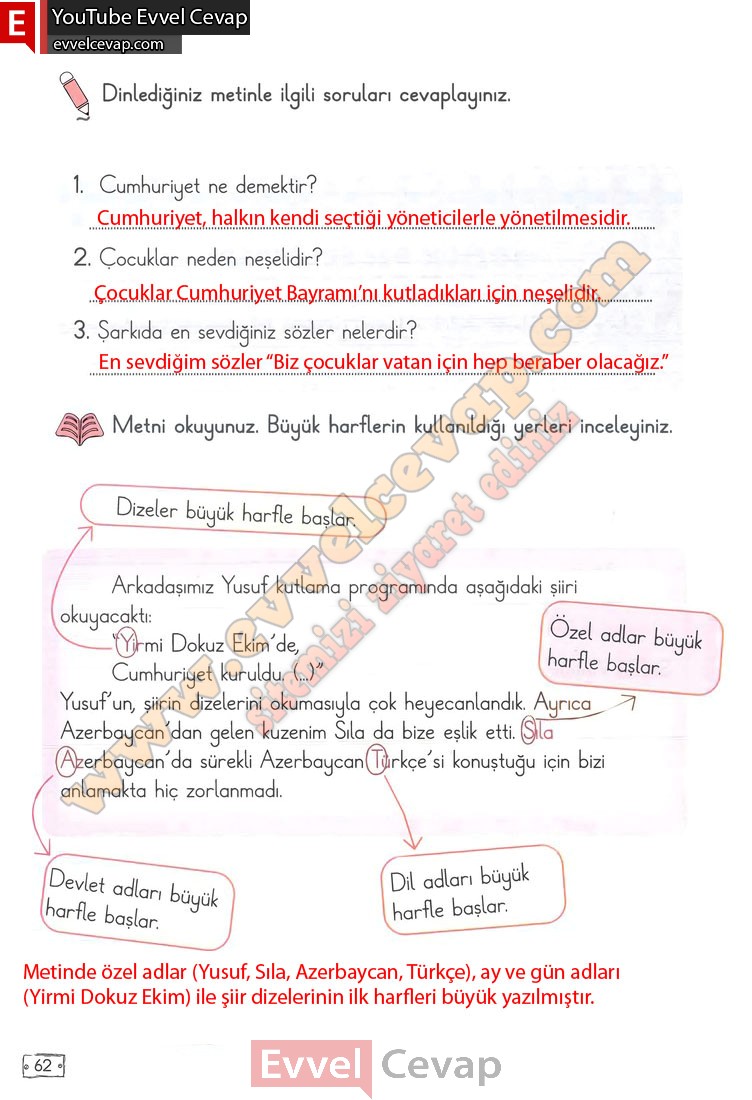 E YouTube Evvel Cevap
evvelcevap.com
Dinlediğiniz metinle ilgili soruları cevaplayınız.
1. Cumhuriyet ne demektir?
Cumhuriyet, halkın kendi seçtiği yöneticilerle yönetilmesidir.
2. Çocuklar neden neşelidir?
Çocuklar Cumhuriyet Bayramı’nı kutladıkları için neşelidir.
3. Şarkıda en sevdiğiniz sözler nelerdir?
En sevdiğim sözler “Biz çocuklar vatan için hep beraber olacağız.”
Metni okuyunuz. Büyük harflerin kullanıldığı yerleri inceleyiniz.
Dizeler büyük harfle başlar.
Arkadaşımız Yusuf kutlama programında aşağıdaki şiiri
okuyacaktı:
“Yirmi Dokuz Ekim’de,
Cumhuriyet kuruldu. (...)”
Özel adlar büyük
harfle başlar.
Yusuf’un, şiirin dizelerini okumasıyla çok heyecanlandık. Ayrıca
Azerbaycan’dan gelen kuzenim Sıla da bize eşlik etti. Sıla
Azerbaycan’da sürekli Azerbaycan Türkçe’si konuştuğu için bizi
anlamakta hiç zorlanmadı.
Devlet adları büyük
harfle başlar.
Dil adları büyük
harfle başlar.
Metinde özel adlar (Yusuf, Sıla, Azerbaycan, Türkçe), ay ve gün adları
(Yirmi Dokuz Ekim) ile şiir dizelerinin ilk harfleri büyük yazılmıştır.
62
Evvel Cevap
www.evvelcevap.com
sitemizi ziyaret ediniz